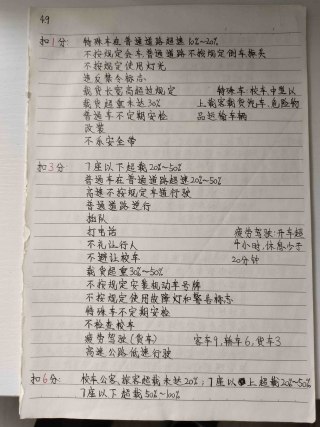 49
扣1分: 特殊车在普通道路超速10%~20%
不按规定会车.普通道路不按规定倒车掉头
不按规定使用灯光
违反禁令标志
载货长宽高超过规定 特殊车:校车.中型以
载货超重未达30% 上载客载货汽车、危险物
普通车不定期安检 品运输车辆
改装
不系安全带
扣3分: 7座以下超载20%~50%
普通车在普通道路超速20%~50%
高速不按规定车道行驶
普通道路逆行
插队
打电话 疲劳驾驶:开车超
不礼让行人 4小时,休息少于
不避让校车 20分钟
载货超重30%~50%
不按规定安装机动车号牌
不按规定使用故障灯和警告标志
特殊车不定期安检
不检查校车
疲劳驾驶(货车) 客车9,轿车6,货车3
高速公路低速行驶
扣6分: 校车公客,旅客超载未达20%;7座以上超载20%~50%
7座以下超载50%~100%